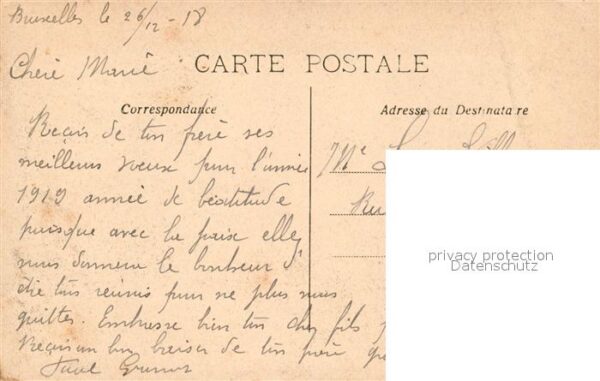 Bruxelles le 26/12 - 18
Chère Marie
CARTE POSTALE
Correspondance
Adresse du Destinataire
Reçois de ton frère ses
meilleurs voeux pour l'année
1919 année de béatitude
puisque avec la paix elle
nous donnera le bonheur d'
être tous réunis pour ne plus nous
quitter. Embrasse bien ton cher fils
Reçois un bon baiser de ton frère
Paul
Mme
privacy protection
Datenschutz